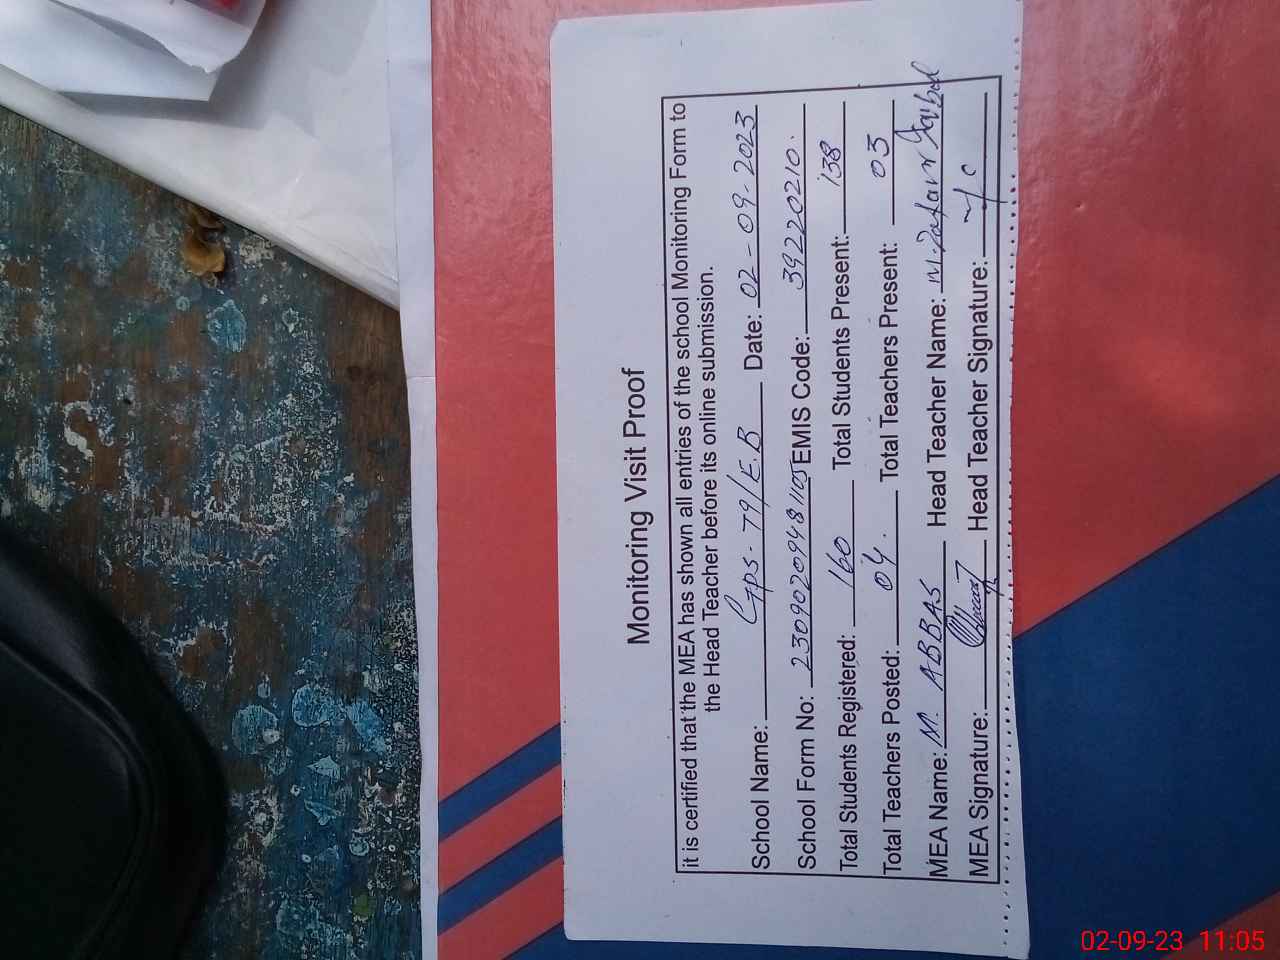 Monitoring Visit Proof
it is certified that the MEA has shown all entries of the school Monitoring Form to
the Head Teacher before its online submission.
School Name: GPS-79/E.B Date: 02-09-2023
School Form No: 230902094811105 EMIS Code: 39220210.
Total Students Registered: 160 Total Students Present: 138
Total Teachers Posted: 04. Total Teachers Present: 03
MEA Name: M. ABBAS Head Teacher Name: M. Zafar
MEA Signature: Head Teacher Signature:
02-09-23 11:05